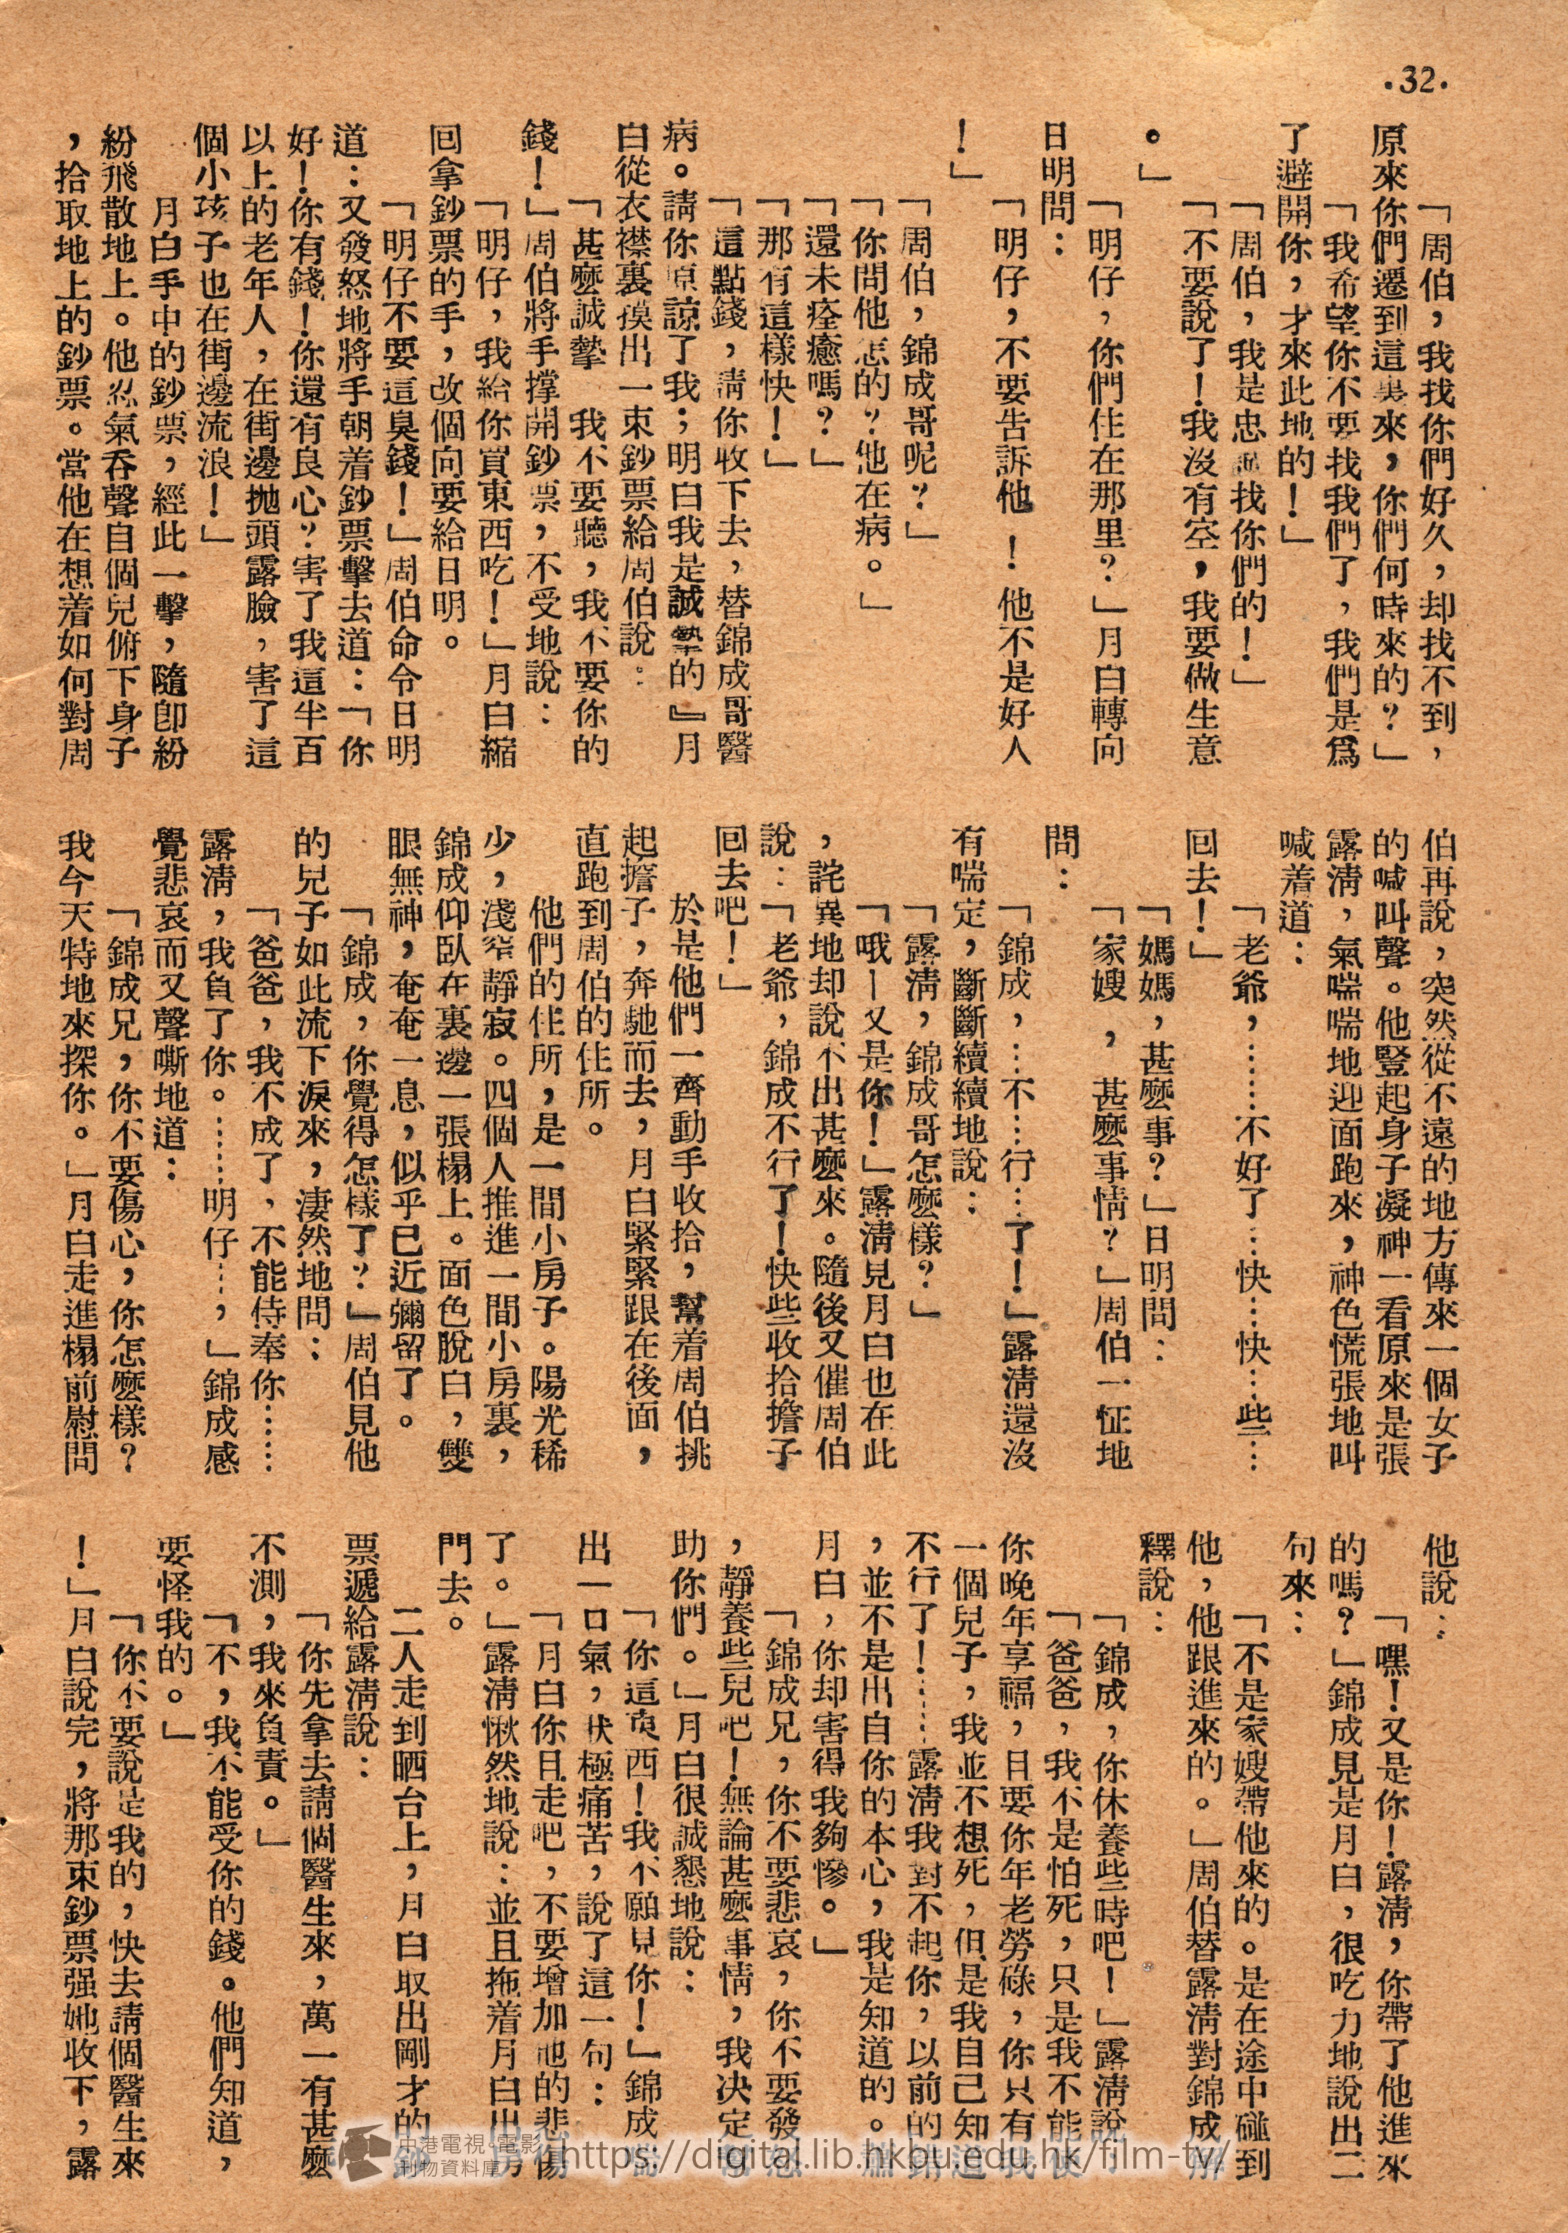 ·32·
「周伯，我找你們好久，却找不到，
原來你們遷到這裏來，你們何時來的？」
「我希望你不要找我們了，我們是爲
了避開你，才來此地的！」
「周伯，我是忠誠找你們的！」
「不要說了！我沒有空，我要做生意
。」
「明仔，你們住在那里？」月白轉向
日明問：
「明仔，不要告訴他！他不是好人
！」
「周伯，錦成哥呢？」
「你問他怎的？他在病。」
「還未痊癒嗎？」
「那有這樣快！」
「這點錢，請你收下去，替錦成哥醫
病。請你原諒了我；明白我是誠摯的』月
白從衣襟裏摸出一束鈔票給周伯說：
「甚麼誠摯　我不要聽，我不要你的
錢！」周伯將手撑開鈔票，不受地說：
「明仔，我給你買東西吃！」月白縮
回拿鈔票的手，改個向要給日明。
「明仔不要這臭錢！」周伯命令日明
道：又發怒地將手朝着鈔票擊去道：「你
好！你有錢！你還有良心？害了我這半百
以上的老年人，在街邊拋頭露臉，害了這
個小孩子也在街邊流浪！」
月白手中的鈔票，經此一擊，隨卽紛
紛飛散地上。他忍氣吞聲自個兒俯下身子
，拾取地上的鈔票。當他在想着如何對周
伯再說，突然從不遠的地方傳來一個女子
的喊叫聲。他豎起身子凝神一看原來是張
露淸，氣喘喘地迎面跑來，神色慌張地叫
喊着道：
「老爺，……不好了…快…快…些…
回去！」
「媽媽，甚麼事？」日明問：
「家嫂，甚麼事情？」周伯一怔地
問：
「錦成，…不…行…了！」露淸還沒
有喘定，斷斷續續地說：
「露淸，錦成哥怎麼樣？」
「哦—又是你！」露淸見月白也在此
，詫異地却說不出甚麼來。隨後又催周伯
說：「老爺，錦成不行了！快些收拾擔子
回去吧！」
於是他們一齊動手收拾，幫着周伯挑
起擔子，奔馳而去，月白緊緊跟在後面，
直跑到周伯的住所。
他們的住所，是一間小房子。陽光稀
少，淺窄靜寂。四個人推進一間小房裏，
錦成仰臥在裏邊一張榻上。面色脫白，雙
眼無神，奄奄一息，似乎已近彌留了。
「錦成，你覺得怎樣了？」周伯見他
的兒子如此流下淚來，淒然地問：
「爸爸，我不成了，不能侍奉你……
露淸，我負了你。……明仔…，」錦成感
覺悲哀而又聲嘶地道：
「錦成兄，你不要傷心，你怎麼樣？
我今天特地來探你。」月白走進榻前慰問
他說：
「嘿！又是你！露淸，你帶了他進來
的嗎？」錦成見是月白，很吃力地說出二
句來：
「不是家嫂帶他來的。是在途中碰到
他，他跟進來的。」周伯替露淸對錦成解
釋說：
「錦成，你休養些時吧！」露淸說：
「爸爸，我不是怕死，只是我不能使
你晚年享福，日要你年老勞碌，你只有我
一個兒子，我並不想死，但是我自己知道
不行了！……露淸我對不起你，以前的錯
，並不是出自你的本心，我是知道的。蕭
月白，你却害得我夠慘。」
「錦成兄，你不要悲哀，你不要發怒
，靜養些兒吧！無論甚麼事情，我決定幫
助你們。」月白很誠懇地說：
「你這東西！我不願見你！」錦成喘
出一口氣，狀極痛苦，說了這一句：
「月白你且走吧，不要增加他的悲傷
了。」露淸愀然地說：並且拖着月白出房
門去。
二人走到晒台上，月白取出剛才的鈔
票遞給露淸說：
「你先拿去請個醫生來，萬一有甚麼
不測，我來負責。」
「不，我不能受你的錢。他們知道，
要怪我的。」
「你不要說是我的，快去請個醫生來
！」月白說完，將那束鈔票强她收下，露
中港電視·電影
刊物資料庫
https://digital.lib.hkbu.edu.hk/film-tv/